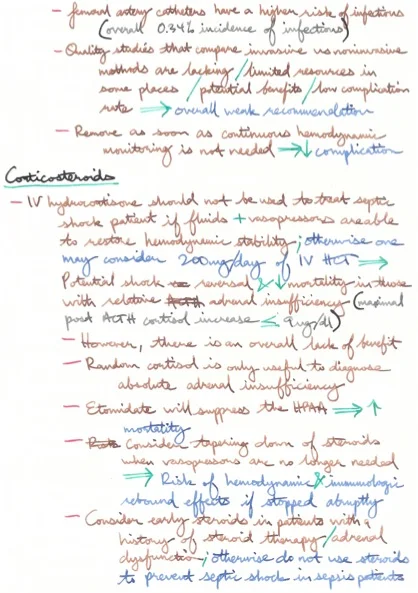 – femoral artery catheters have a higher risk of infections
(overall 0.34% incidence of infections)
– Quality studies that compare invasive vs noninvasive
methods are lacking / limited resources in
some places / potential benefits / low complication
rate ⟹ overall weak recommendation
– Remove as soon as continuous hemodynamic
monitoring is not needed ⟹ ↓ complication
Corticosteroids
– IV hydrocortisone should not be used to treat septic
shock patient if fluids + vasopressors are able
to restore hemodynamic stability; otherwise one
may consider 200mg/day of IV HCT ⟹
Potential shock reversal & ↓ mortality in those
with relative adrenal insufficiency (maximal
post ACTH cortisol increase ≤ 9ug/dl)
– However, there is an overall lack of benefit
– Random cortisol is only useful to diagnose
absolute adrenal insufficiency
– Etomidate will suppress the HPAA ⟹ ↑
mortality
– Consider tapering down of steroids
when vasopressors are no longer needed
⟹ Risk of hemodynamic & immunologic
rebound effects if stopped abruptly
– Consider early steroids in patients with a
history of steroid therapy / adrenal
dysfunction; otherwise do not use steroids
to prevent septic shock in sepsis patients